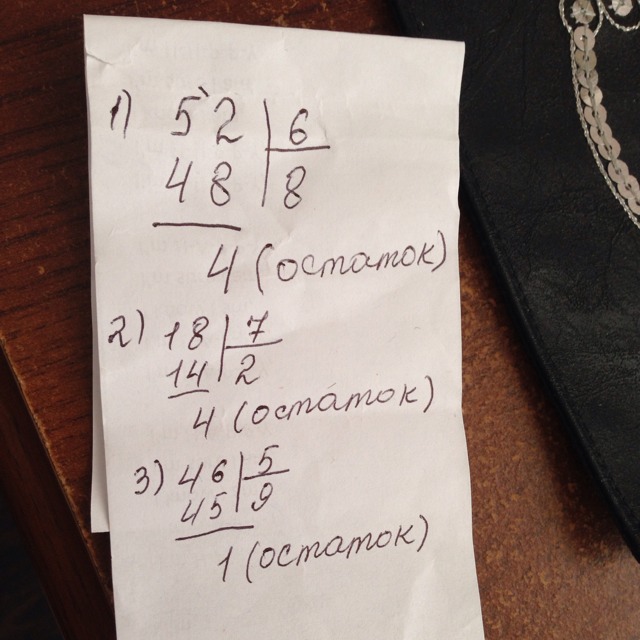 1) 52 | 6
48 | 8
4 (остаток)
2) 18 | 7
14 | 2
4 (остаток)
3) 46 | 5
45 | 9
1 (остаток)